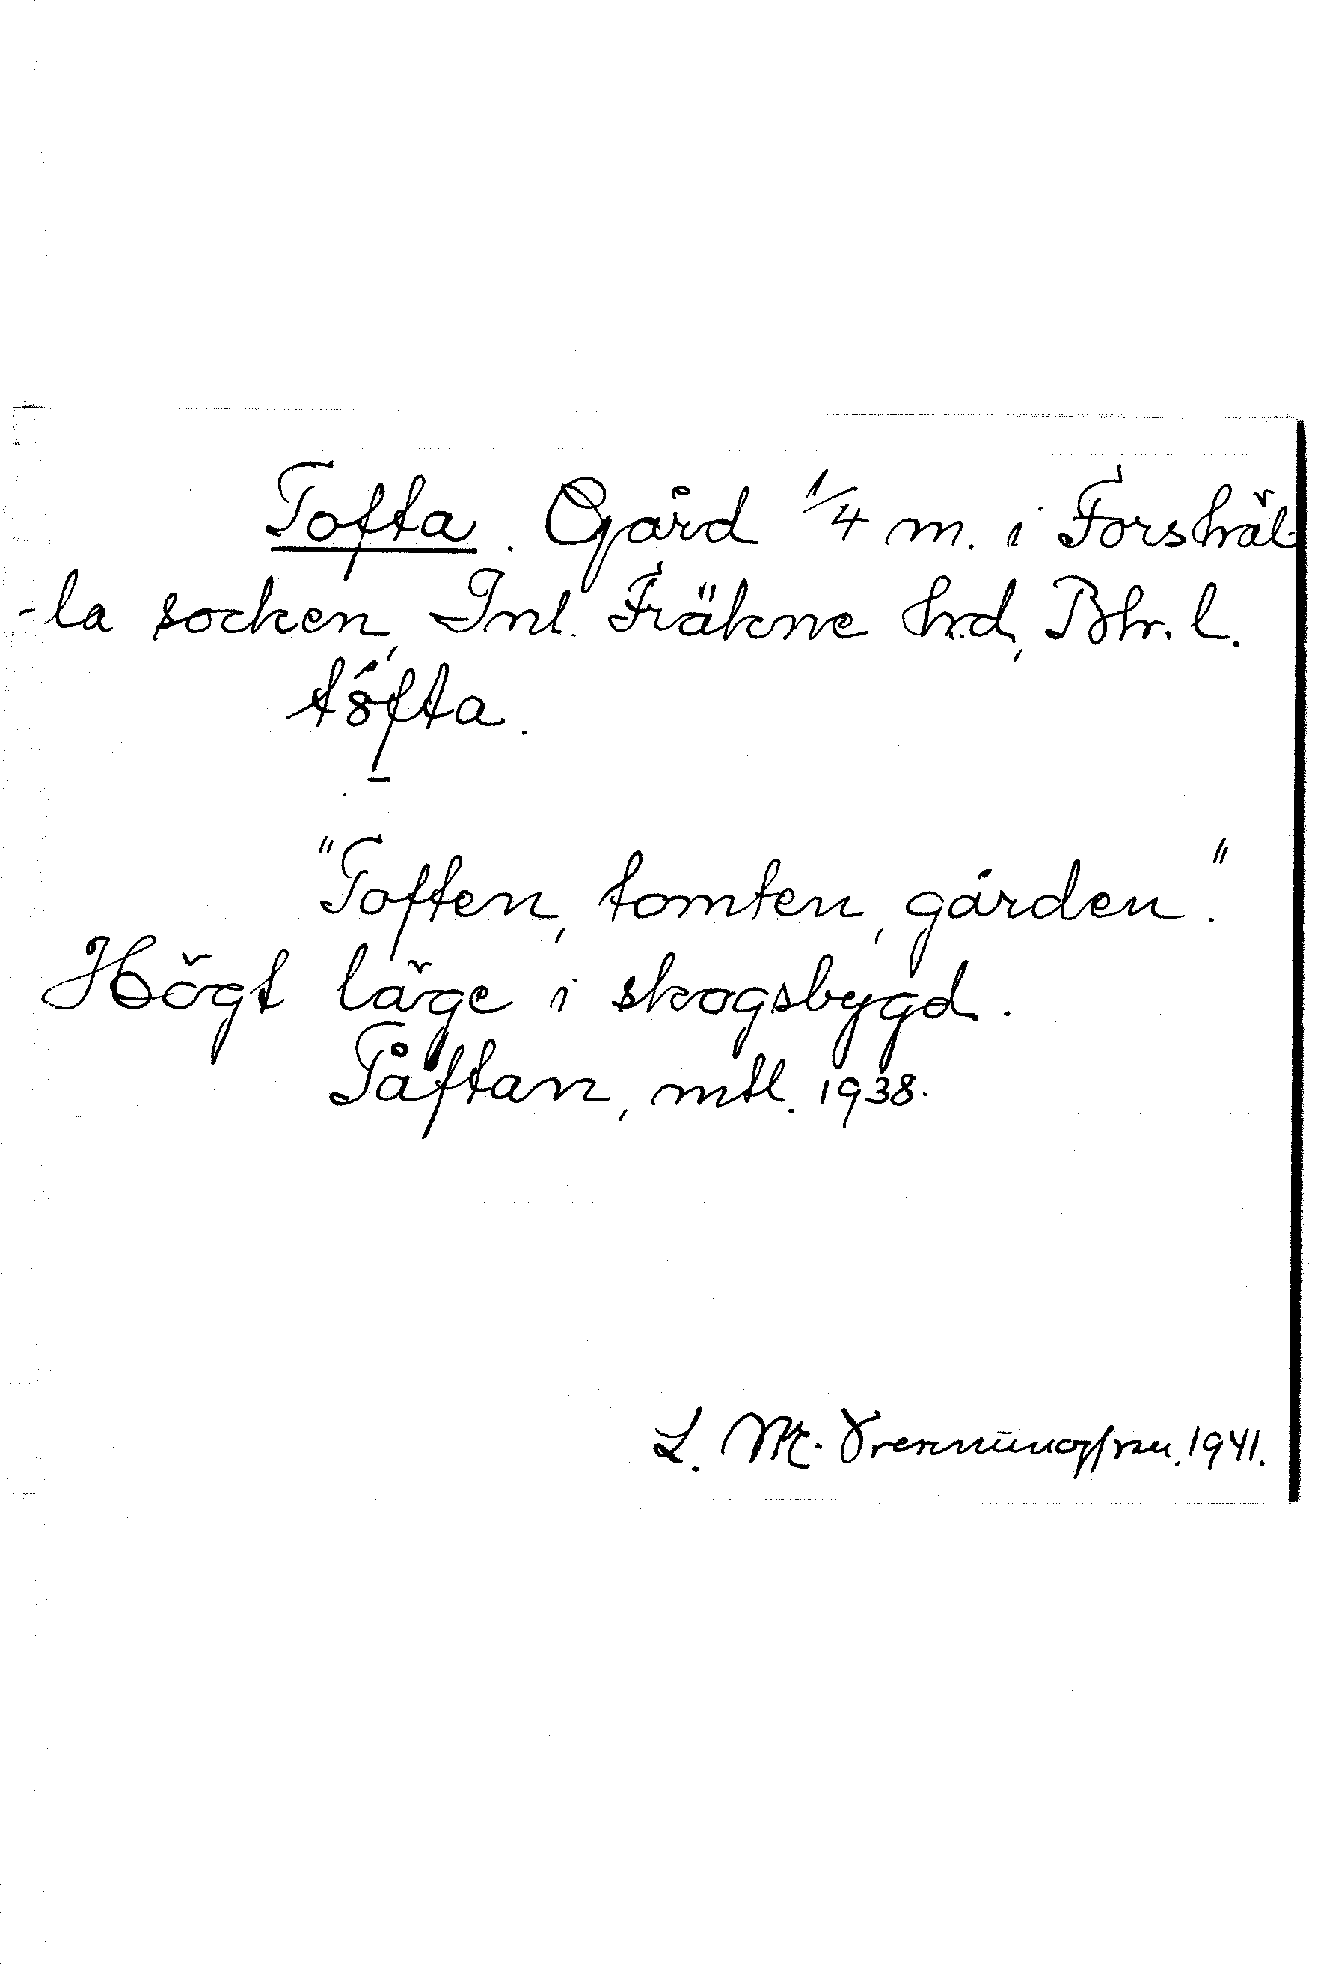 Tofta. Gård 1/4 m. i Forshäl-
-la socken, Inl. Fräkne hrd, Bhr. l.
Toften, tomten, gården."
Högt läge i skogsbygd.
Tåftan, mtl. 1938.
L. M. 1941.